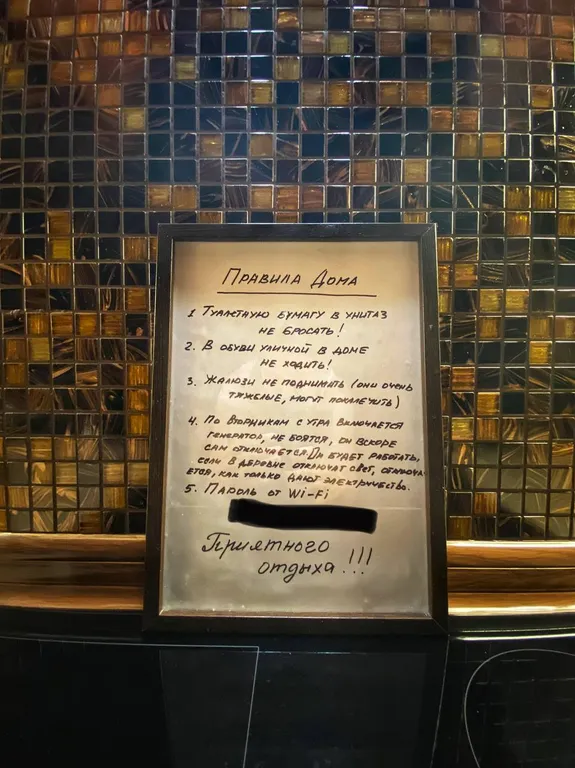 Правила Дома
1 Туалетную бумагу в унитаз
не бросать!
2. В обуви уличной в доме
не ходить!
3. Жалюзи не поднимать (они очень
тяжелые, могут покалечить)
4. По вторникам с утра включается
генератор, не боятся, он вскоре
сам отключается. Он будет работать,
если в деревне отключат свет, отключа-
ется, как только дают электричество.
5. Пароль от Wi-Fi
Приятного
отдыха!!!